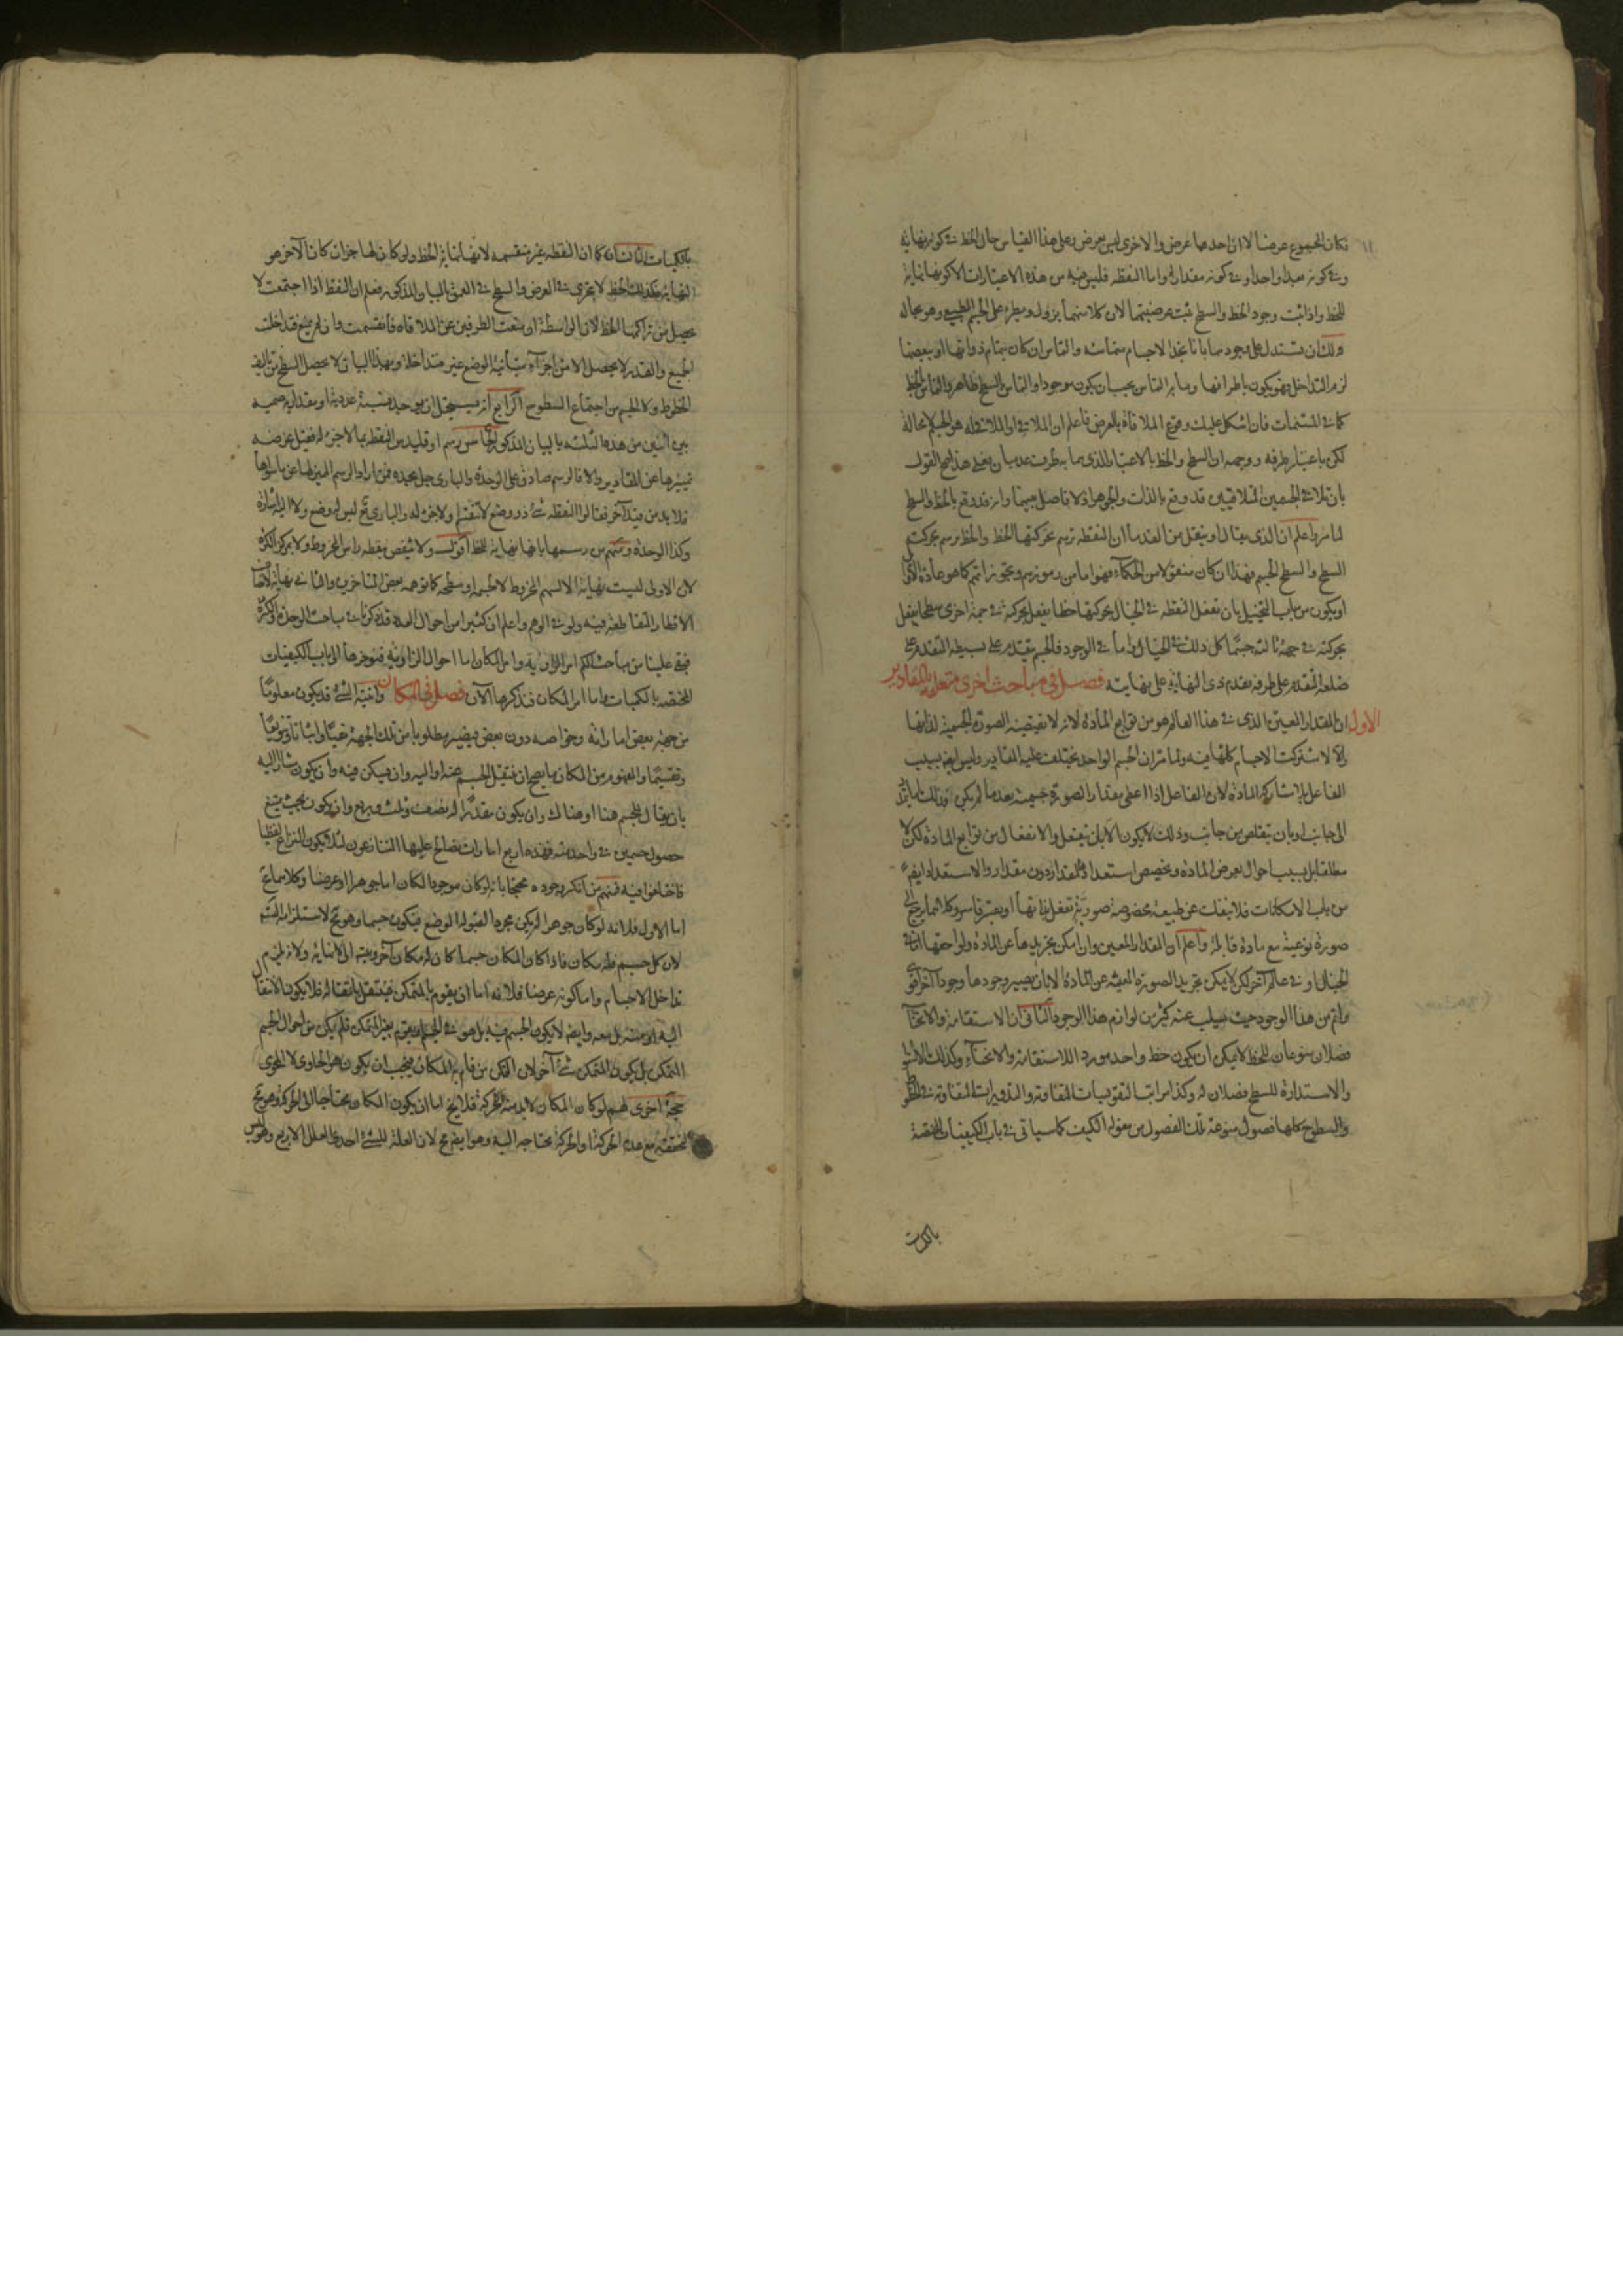 فكان المجموع عرضا لا ان احدهما عرض والاخرى ليس بعرض وعلى هذا القياس حال الخط في كونه نهاية
وفي كونه مبدا واحدا وفي كونه مقدارا واما النقطه فليس فيه من هذه الاعتبارات الا كونها نهاية
للخط واذا ثبت وجود الخط والسطح ثبت عرضيتهما لان كلا منهما يزول ويطرء على الجسم الطبيعي وهو بحاله
ولك ان تستدل على وجودهما بانا نجد الاجسام متماسه والتماس ان كان بتمام ذواتها او ببعضها
لزم التداخل فهو يكون باطرافها وما به التماس يجب ان يكون موجودا والتماس بالسطح ظاهر والتماس بالخط
كما في المسنمات فان اشكل عليك وقوع الملاقاة بالعرض فاعلم ان الملاقي او الملاقى له هو الجسم لا محالة
لكن باعتبار طرفه ووجهه ان السطح والخط بالاعتبار الذي هما به طرف عدميان فعلى هذا يصح القول
بان تلاقي الجسمين المتلاقيين قد وقع بالذات والجوهر اذ لا فاصل بينهما وانه قد وقع بالخط والسطح
لما مر واعلم ان الذي يقال او ينقل من القدماء ان النقطه ترسم بحركتها الخط والخط يرسم بحركته
السطح والسطح الجسم فهذا ان كان منقولا من الحكماء فهو اما من رموزهم وتجوزاتهم كما هو عادة الاوائل
او يكون من باب التخييل بان تفعل النقطه في الخيال بحركتها خطا يفعل بحركته في جهة اخرى سطحا يفعل
بحركته في جهة ثالثه جسما كل ذلك في الخيال واما في الوجود فالجسم يتقدم على بسيطه المتقدم على
ضلعه المتقدم على طرفه تقدم ذي النهاية على نهايته فصل في مباحث اخرى متعلقه بالمقادير
الاول ان المقدار المعين الذي في هذا العالم هو من توابع المادة لانه لا تقتضيه الصورة الجسمية لذاتها
والا لاشتركت الاجسام كلها فيه ولما مر ان الجسم الواحد يختلف عليه المقادير وليس ايضا بسبب
الفاعل بلا مشاركة المادة لان الفاعل اذا اعطى مقدار الصورة جسمية بعدما لم يكن فذلك اما بالمد
الى جانب او بان يتقلص من جانب وذلك لا يكون الا بان ينفعل والانفعال من توابع المادة لكن لا
مطلقا بل بسبب احوال تعرض المادة وتخصيص استعدادها لمقدار دون مقدار والاستعداد ايضا
من باب الامكانات فلا ينفك عن طبيعة مخصوصة صورية تفعل بذاتها او بقسر قاسر وكلاهما يرجع الى
صورة نوعية مع مادة قابلة واعلم ان المقدار المعين وان امكن تجريدها عن المادة ولواحقها اما في
الخيال او في عالم آخر لكن لا يمكن تجريد الصورة المعينة عن المادة الا بان يصير وجودها وجودا آخر اقوى
واتم من هذا الوجود حيث يسلب عنه كثير من لوازم هذا الوجود الثاني ان الاستقامة والانحناء
فصلان منوعان للخط لا يمكن ان يكون خط واحد مورد اللاستقامة والانحناء وكذلك الاستواء
والاستدارة للسطح فصلان له وكذا مراتب التقويسات المتفاوته والتدويرات المتفاوته في الخطوط
والسطوح كلها فصول منوعة تلك الفصول من مقولة الكيف كما سياتي في باب الكيفيات المختصة
بالكميات
بالكميات الثالث ان كما ان النقطه غير منقسمه لانها نهاية الخط ولو كان لها جزان كان الآخر هو
النهاية فكذلك الخط لا يتجزى في العرض والسطح في العمق بالبيان المذكور فعلم ان النقط اذا اجتمعت لا
يحصل من تراكمها الخط لان الواسطة ان منعت الطرفين عن الملاقاه فانقسمت وان لم يمنع فتداخلت
الجميع والقدر لا يحصل الا من اجزاء متباينة الوضع غير متداخلة وبهذا البيان لا يحصل السطح من تاليف
الخطوط ولا الجسم من اجتماع السطوح الرابع انه يستحيل ان يوجد نسبة عددية او مقدارية صميه
بين اثنين من هذه الثلثه بالبيان المذكور الخامس رسم اوقليدس النقطه بما لا جزء له فقيل غرضه
تمييزها عن المقادير والا فالرسم صادق على الوحدة والباري جل مجده فمن اراد الرسم المميز لها عن ما سواها
فلا بد من قيد آخر فقالوا النقطه شيء ذو وضع لا تنقسم ولا جزء له والباري تع ليس له وضع ولا اليه اشارة
وكذا الوحدة ومنهم من رسمها بانها نهاية للخط اقول ولا ينقض بنقطه راس المخروط ولا بمركز الكرة
لان الاولى ليست نهاية الا لسهم المخروط لا لجسمه او سطحه كما توهمه بعض المتاخرين والثانيه نهاية لانصاف
الاقطار المتقاطعة فيه ولو في الوهم واعلم ان كثيرا من احوال العدد قد ذكرناه في مباحث الوحدة والكثرة
فبقي علينا من مباحث الكم امر الزاوية وامر المكان اما احوال الزاويه فنوخرها الى باب الكيفيات
المختصه بالكميات واما امر المكان فنذكرها الآن فصل في المكان وانيته الشيء قد يكون معلوما
من جهة بعض اماراته وخواصه دون بعض فيصير مطلوبا من تلك الجهة نفيا واثباتا وتنويعا
وتقسيما والمفهوم من المكان ما يصح ان ينتقل الجسم عنه او اليه وان يسكن فيه وان يكون مشارا اليه
بان يقال للجسم هنا او هناك وان يكون مقدرا له نصف وثلث وربع وان يكون بحيث يمتنع
حصول جسمين في واحد منه فهذه اربع امارات تصالح عليها المتنازعون لئلا يكون النزاع لفظيا
فاختلفوا فيه فمنهم من انكر وجوده محتجا بانه لو كان موجودا لكان اما جوهرا او عرضا وكلاهما مح
اما الاول فلانه لو كان جوهرا لم يكن مجردا لقبوله الوضع فيكون جسما وهو مح لاستلزامه التسلسل
لان كل جسم فله مكان فاذا كان المكان جسما كان له مكان آخر وينتهي الى الانهاية ولانه يلزم
تداخل الاجسام واما كونه عرضا فلانه اما ان يقوم بالمتمكن فينتقل بانتقاله فلا يكون الانتقال
اليه او منه بل معه وايضا لا يكون الجسم فيه بل هو في الجسم او يقوم بغير المتمكن فلم يكن من احوال الجسم
المتمكن بل يكون المتمكن شيء آخر لان المتمكن من قام به المكان فيجب ان يكون هو الحاوي لا المحوي
حجة اخرى لهم لو كان المكان لا بد منه للحركة فلا يخ اما ان يكون المكان محتاجا الى الحركة وهو مح
لتحققه مع عدم الحركة او الحركة محتاجه اليه وهو ايضا مح لان العلة للشيء احدى العلل الاربع وهو ليس